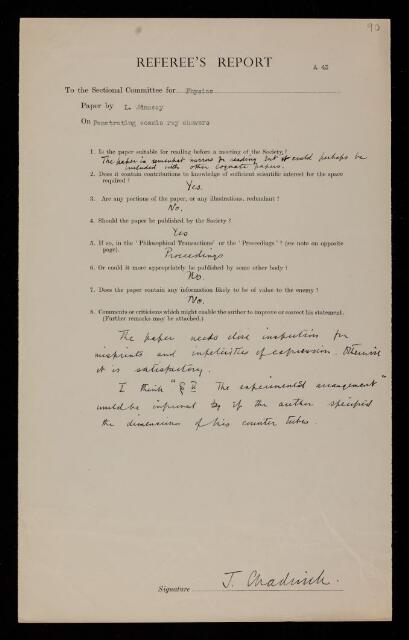 90
REFEREE'S REPORT
A 43
To the Sectional Committee for Physics
Paper by L. Jánossy
On Penetrating cosmic ray showers
1. Is the paper suitable for reading before a meeting of the Society?
The paper is somewhat narrow for reading but it could perhaps be
included with other cognate papers.
2. Does it contain contributions to knowledge of sufficient scientific interest for the space
required?
Yes.
3. Are any portions of the paper, or any illustrations, redundant?
No.
4. Should the paper be published by the Society?
Yes
5. If so, in the 'Philosophical Transactions' or the 'Proceedings'? (see note on opposite
page).
Proceedings
6. Or could it more appropriately be published by some other body?
No.
7. Does the paper contain any information likely to be of value to the enemy?
No.
8. Comments or criticisms which might enable the author to improve or correct his statement.
(Further remarks may be attached.)
The paper needs close inspection for
misprints and infelicities of expression. Otherwise
it is satisfactory.
I think "§ II The experimental arrangement"
would be improved if the author specified
the dimensions of his counter tubes.
Signature J. Chadwick.